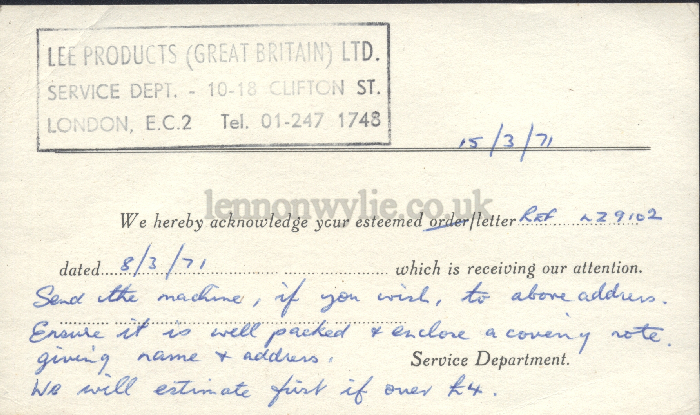 LEE PRODUCTS (GREAT BRITAIN) LTD.
SERVICE DEPT. - 10-18 CLIFTON ST.
LONDON, E.C.2 Tel. 01-247 1748
15/3/71
lennonwylie.co.uk
We hereby acknowledge your esteemed order/letter Ref NZ9102
dated 8/3/71 which is receiving our attention.
Send the machine, if you wish, to above address.
Ensure it is well packed & enclose a covering note.
giving name & address.
Service Department.
We will estimate first if over £4.